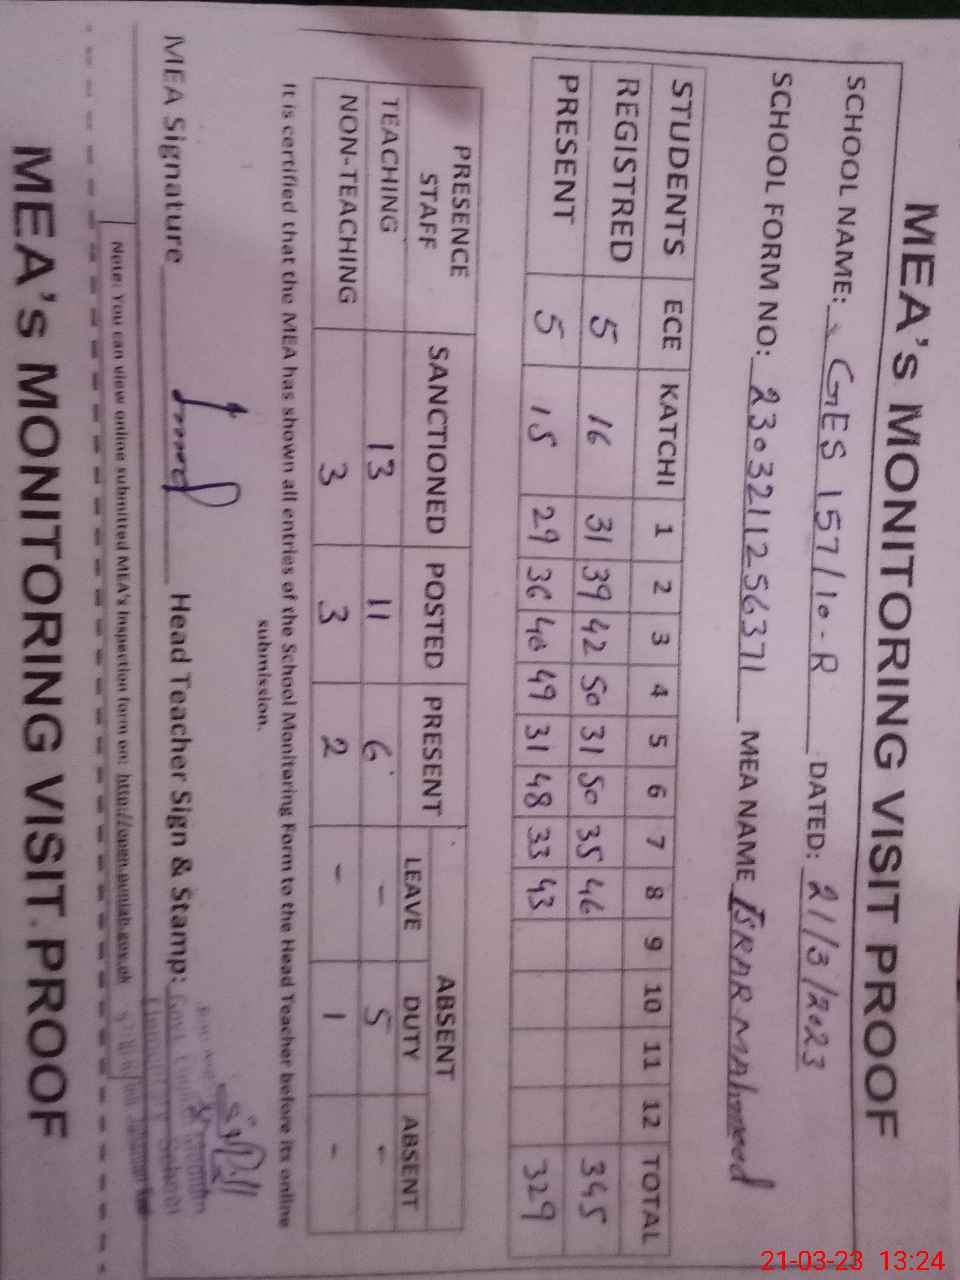 MEA's MONITORING VISIT PROOF
SCHOOL NAME: GES 157/10-R DATED: 21/3/2023
SCHOOL FORM NO: 2303211256371 MEA NAME ISRAR MAhmood
STUDENTS ECE KATCHI 1 2 3 4 5 6 7 8 9 10 11 12 TOTAL
REGISTRED 5 16 31 39 42 50 31 50 35 46 345
PRESENT 5 15 29 36 40 49 31 48 33 43 329
PRESENCE STAFF SANCTIONED POSTED PRESENT ABSENT
LEAVE DUTY ABSENT
TEACHING 13 11 6 - 5 -
NON-TEACHING 3 3 2 - 1 -
It is certified that the MEA has shown all entries of the School Monitoring Form to the Head Teacher before its online
submission.
MEA Signature Head Teacher Sign & Stamp:
Note: You can view online submitted MEA's inspection form on: http://open.punjab.gov.pk
MEA's MONITORING VISIT PROOF
21-03-23 13:24